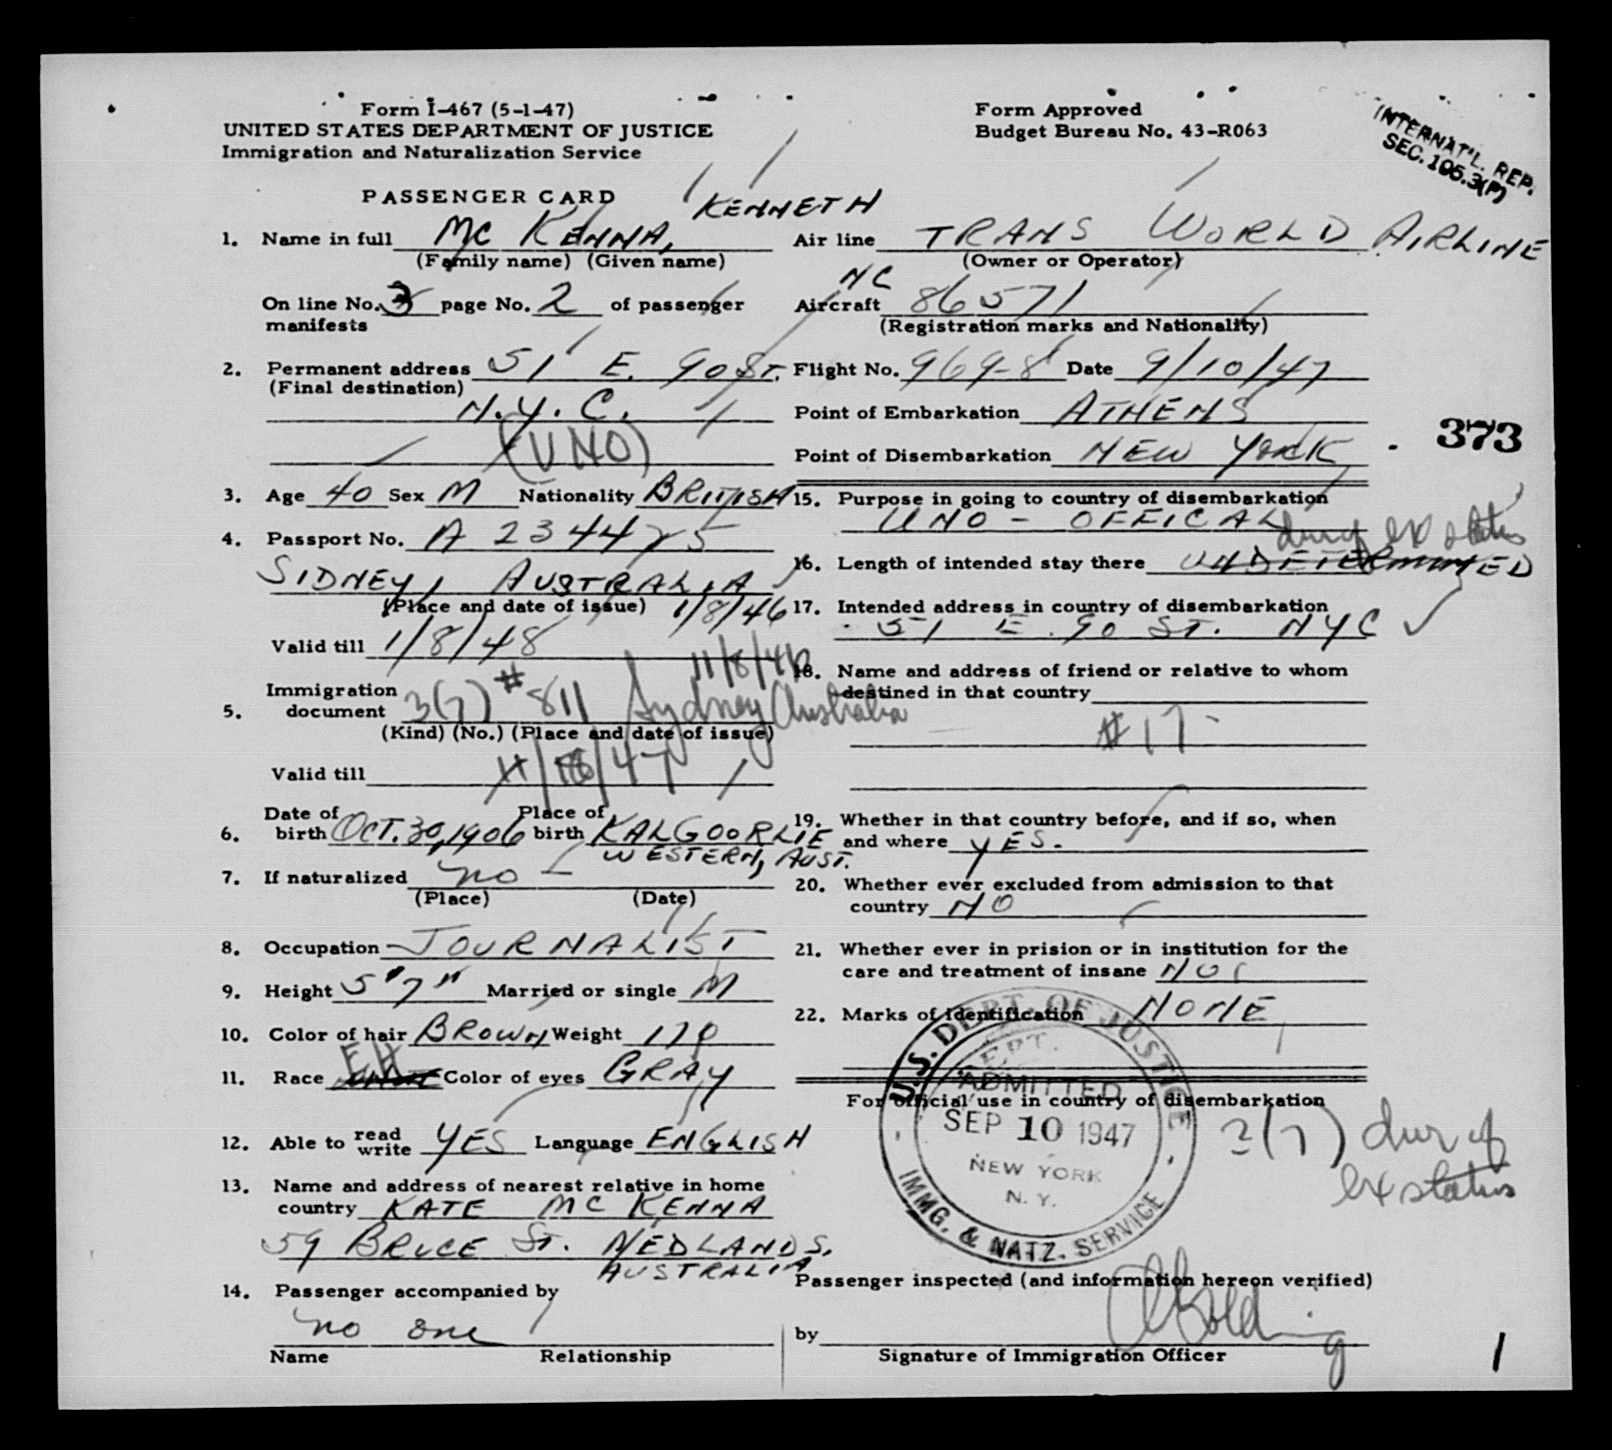 Form I-467 (5-1-47)
UNITED STATES DEPARTMENT OF JUSTICE
Immigration and Naturalization Service
Form Approved
Budget Bureau No. 43-R063
INTERNAT'L. REP.
SEC. 105.3(P)
PASSENGER CARD
KENNETH
1. Name in full MC KENNA,
(Family name) (Given name)
On line No. 3 page No. 2 of passenger
manifests
2. Permanent address 51 E. 90 ST.
(Final destination)
N.Y.C.
(UNO)
3. Age 40 Sex M Nationality BRITISH
4. Passport No. A 234425
SIDNEY, AUSTRALIA
(Place and date of issue) 1/8/46
Valid till 1/8/48
11/8/46
5. Immigration document 3(7) # 811 Sydney Australia
(Kind) (No.) (Place and date of issue)
Valid till
6. Date of birth OCT. 30, 1906 Place of birth KALGOORLIE
WESTERN, AUST.
7. If naturalized no
(Place) (Date)
8. Occupation JOURNALIST
9. Height 5'7" Married or single M
10. Color of hair BROWN Weight 170
11. Race EH Color of eyes GRAY
12. Able to read write YES Language ENGLISH
13. Name and address of nearest relative in home
country KATE MC KENNA
59 BRUCE ST. NEDLANDS,
AUSTRALIA
14. Passenger accompanied by
no one
Name Relationship
Air line TRANS WORLD AIRLINE
(Owner or Operator)
NC
Aircraft 86571
(Registration marks and Nationality)
Flight No. 969-8 Date 9/10/47
Point of Embarkation ATHENS
Point of Disembarkation NEW YORK
373
15. Purpose in going to country of disembarkation
UNO - OFFICAL
dur of ex status
16. Length of intended stay there UNDETERMINED
17. Intended address in country of disembarkation
51 E. 90 ST. NYC
18. Name and address of friend or relative to whom
destined in that country
#17
19. Whether in that country before, and if so, when
and where YES.
20. Whether ever excluded from admission to that
country NO
21. Whether ever in prision or in institution for the
care and treatment of insane NO
22. Marks of Identification NONE
For official use in country of disembarkation
U.S. DEPT. OF JUSTICE
ADMITTED
SEP 10 1947
NEW YORK
N. Y.
IMMG. & NATZ. SERVICE
3(7) dur of
ex status
Passenger inspected (and information hereon verified)
by
Signature of Immigration Officer
1